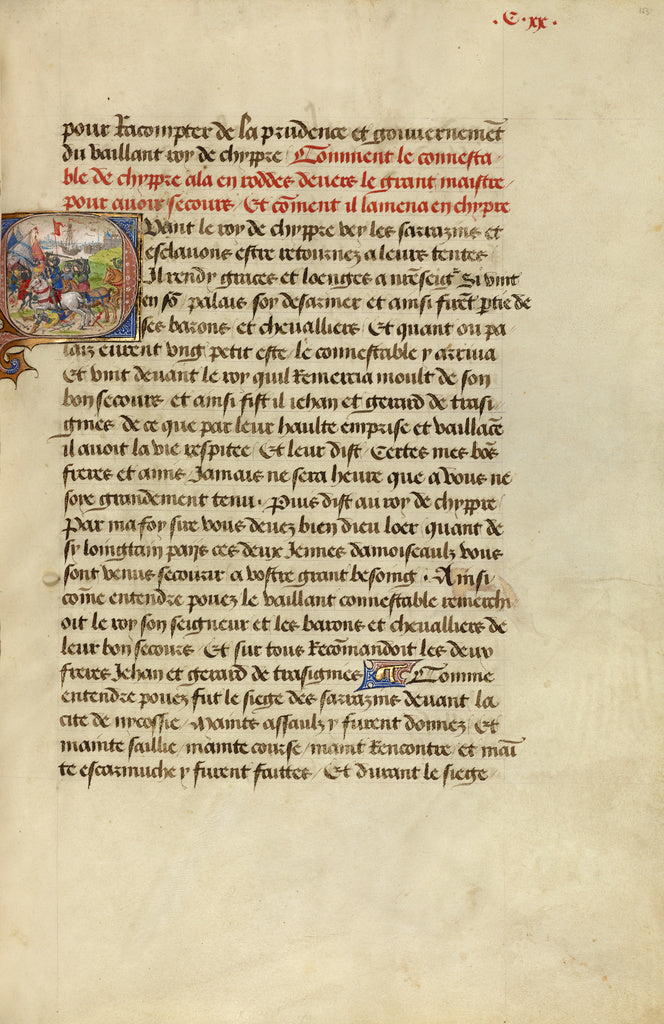 C·xx·
153
pour Racompter de la prudence et gouvernemēt
du vaillant roy de chyppre Comment le connesta/
ble de chyppre ala en roddes devers le grant maistre/
pour avoir secours/ Et cōment il lamena en chypre
Quant le roy de chyppre vey les sarrazins et
esclavons estre retournez a leurs tentes
Il rendy graces et loenges a nrēseigr Si vint
en sō palais soy desarmer et ainsi firēt ptie de
ses barons et chevalliers/ Et quant ou pa/
lais eurent ung petit este/ le connestable y arriva
Et vint devant le roy quil Remercia moult de son
bon secours et ainsi fist il iehan et gerard de trasi/
gnies de ce que par leur haulte emprise et vaillāce
il avoit la vie respitee/ Et leur dist/ Certes mes bōs
freres et amis Jamais ne sera heure que a vous ne
soye grandement tenu. Puis dist au roy de chyppre/
Par ma foy sire vous devez bien dieu loer/ quant de
sy loingtain pays ces deux Jennes damoiseaulz vous
sont venus secourir a vostre grant besoing. Ainsi
cōme entendre povez le vaillant connestable remerchi
oit le roy son seigneur et les barons et chevalliers de
leur bon secours/ Et sur tous Recōmandoit les deux
freres Jehan et gerard de trasignies Comme
entendre povez fut le siege des sarrazins devant la
cite de nycossie/ Maints assaulz y furent donnez/ Et
mainte saillie/ mainte course/ maint Rencontre/ et mai
te escarmuche y furent faittes/ Et durant le siege